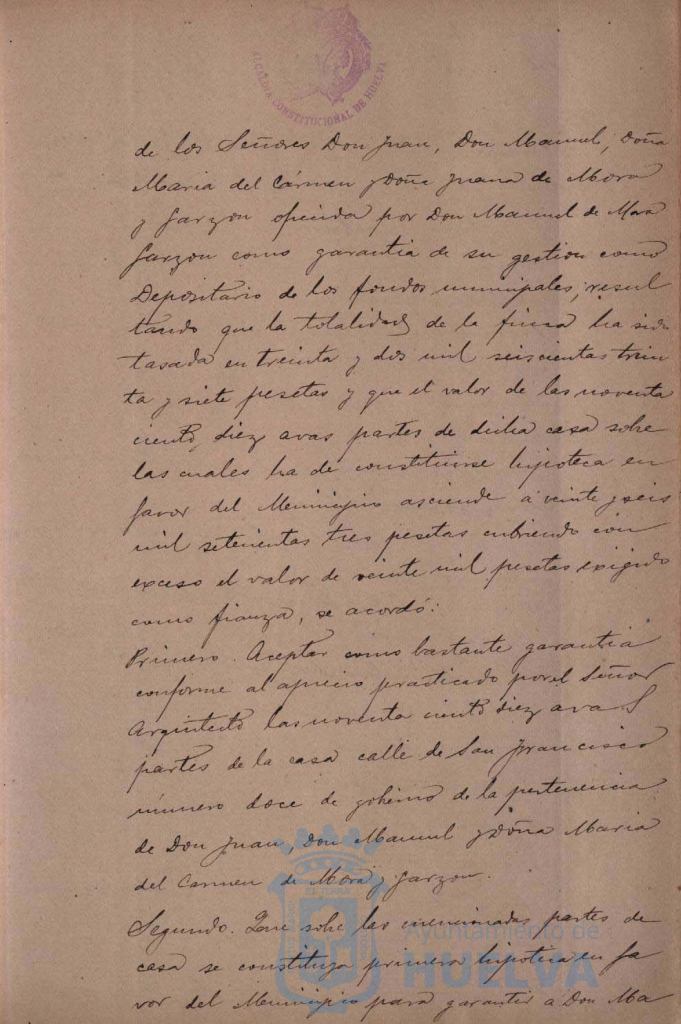 ALCALDIA CONSTITUCIONAL DE HUELVA
de los Señores Don Juan, Don Manuel, Doña
Maria del Cármen y Doña Juana de Mora
y Garzon ofrecida por Don Manuel de Mora
Garzon como garantia de su gestion como
Depositario de los fondos municipales; resul
tando que la totalidad de la finca ha sido
tasada en treinta y dos mil seiscientas trein
ta y siete pesetas y que el valor de las noventa
ciento diez avas partes de dicha casa sobre
las cuales ha de constituirse hipoteca en
favor del Municipio asciende á veinte y seis
mil setecientas tres pesetas cubriendo con
exceso el valor de veinte mil pesetas exigido
como fianza, se acordó:
Primero. Aceptar como bastante garantia
conforme al aprecio practicado por el Señor
Arquitecto las noventa ciento diez avas
partes de la casa calle de San Francisco
número doce de gobierno de la pertenencia
de Don Juan, Don Manuel y Doña Maria
del Carmen de Mora y Garzon.
Segundo. Que sobre las mencionadas partes de
casa se constituya primera hipoteca en fa
vor del Municipio para garantir á Don Ma
Ayuntamiento de
HUELVA